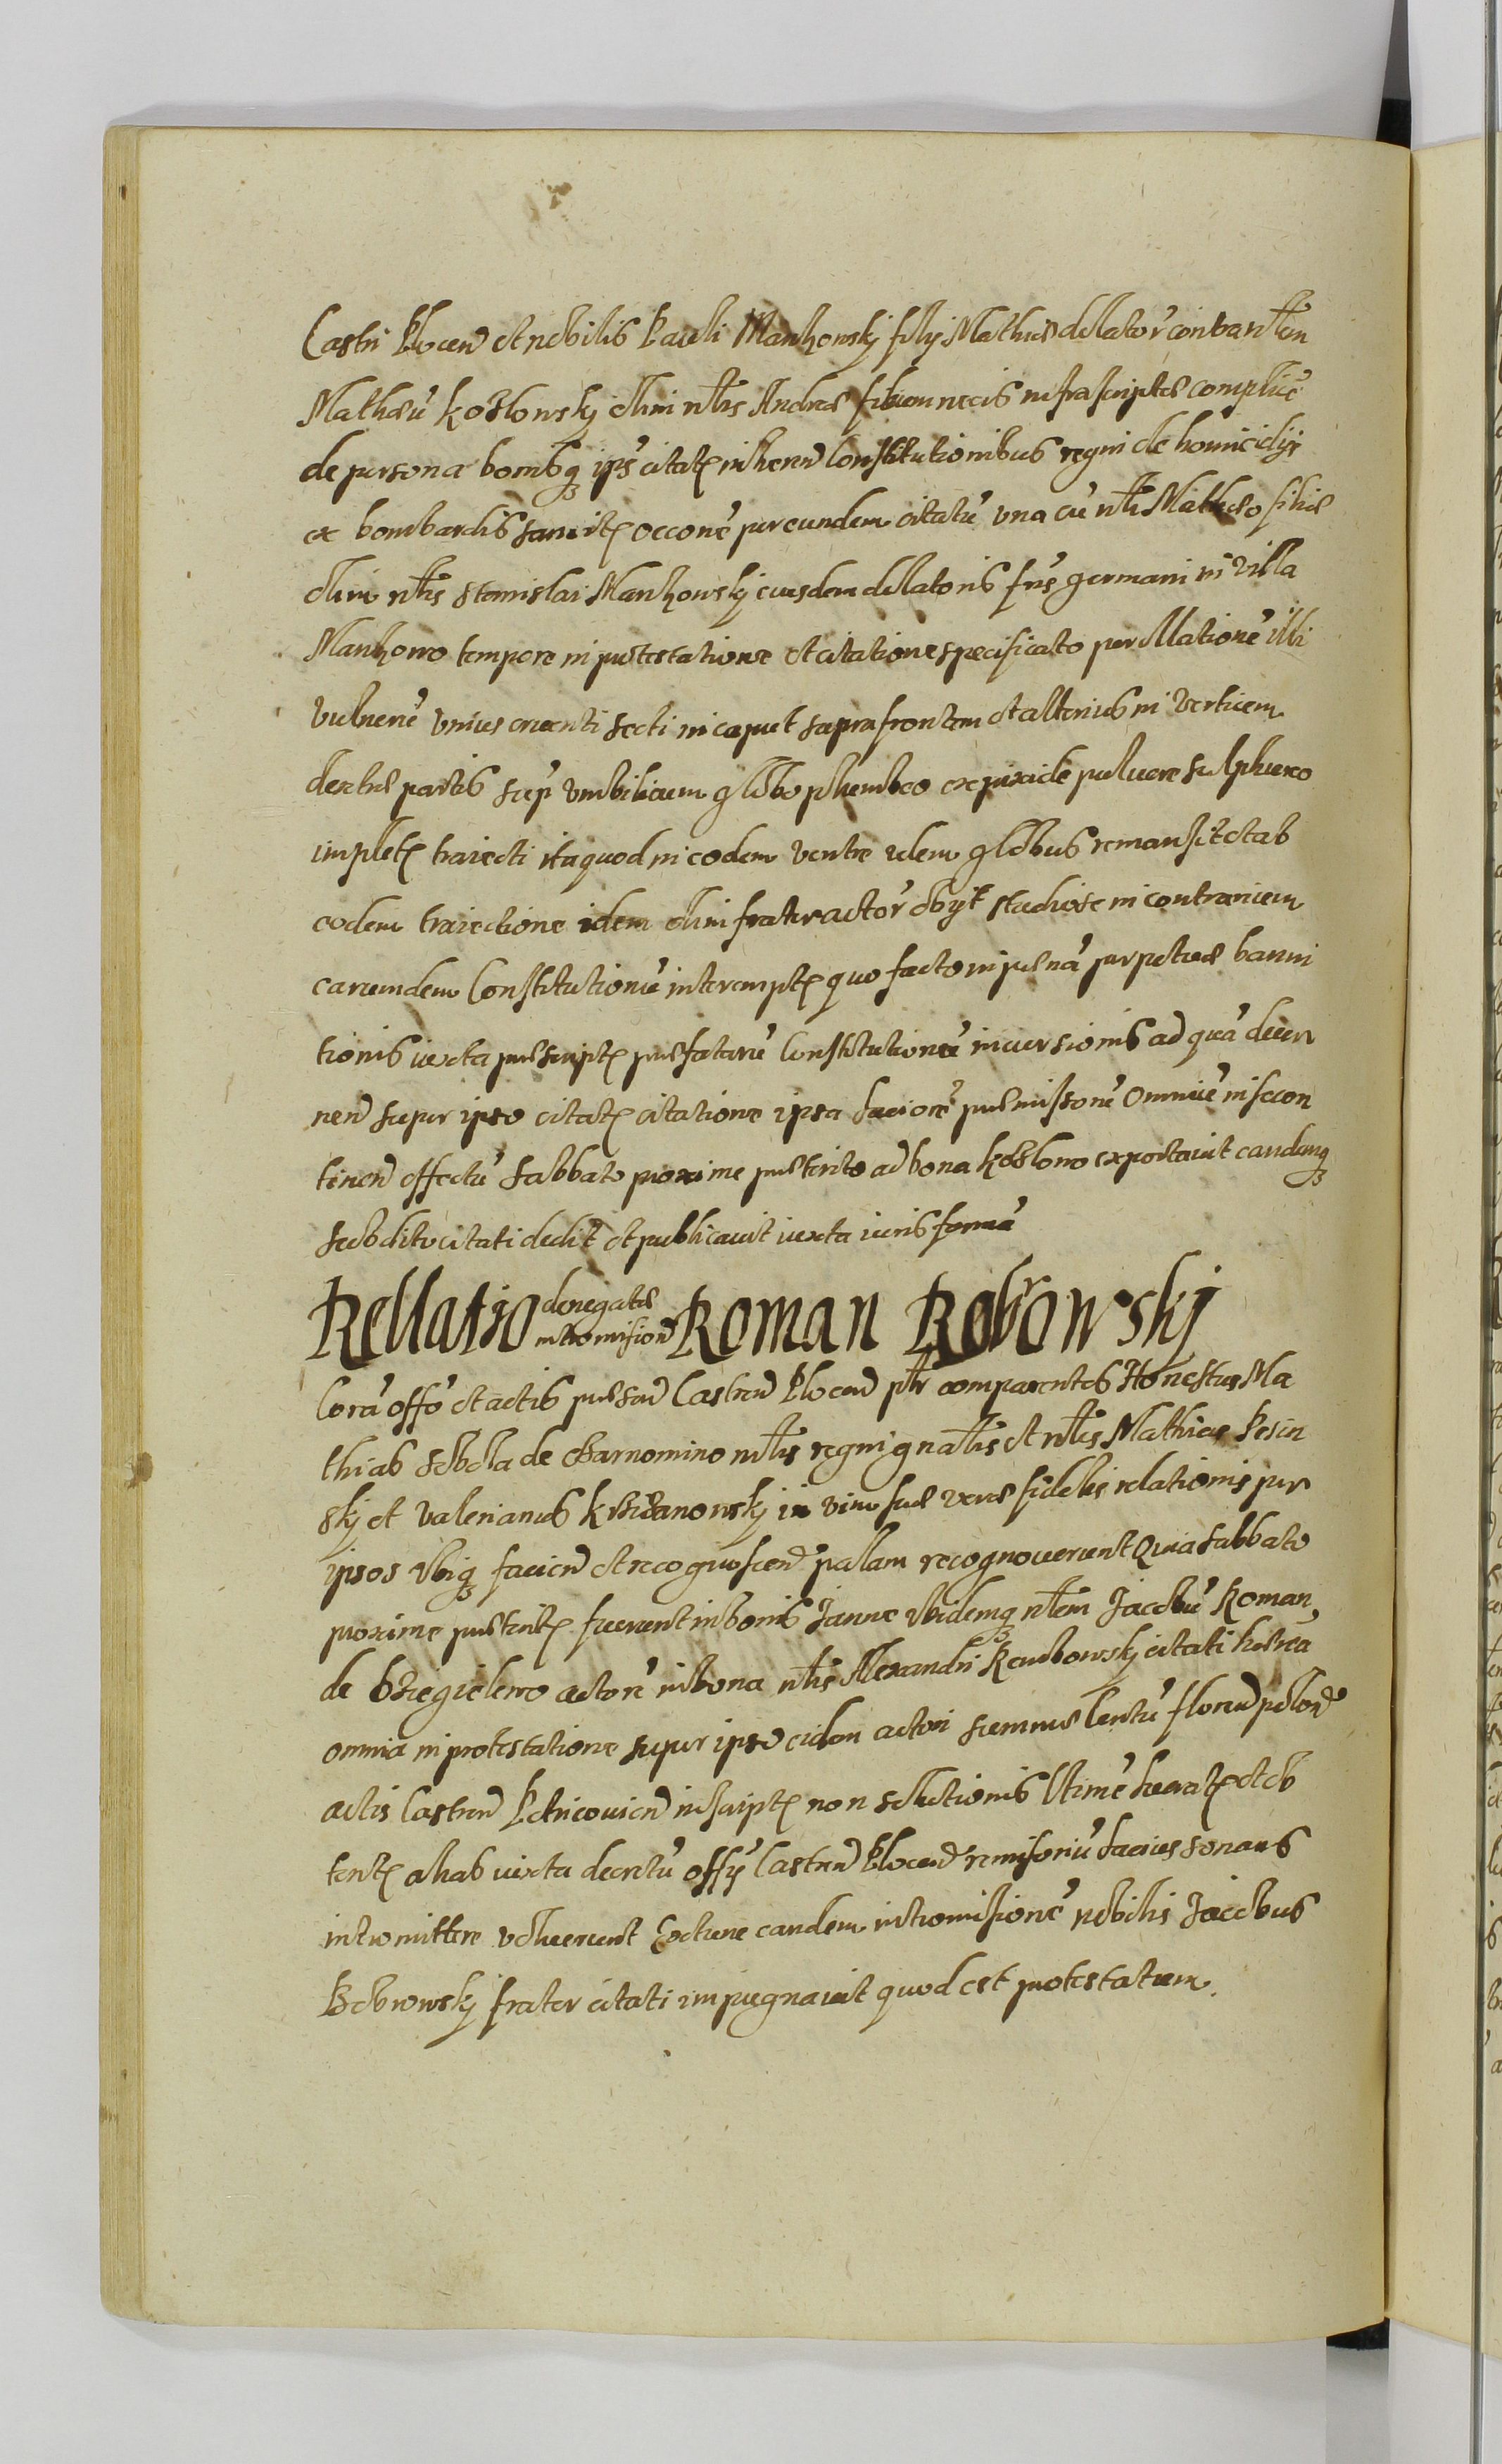 Castri Plocen et nobilis Pauli Mankowskj filij Mathiæ dellator contra nlem
Mathæu Kozlowskj olim nlis Andreæ filium necis infrascriptæ complicē
de persona bonisq ips citat inhæren Constitutionibus regni de homicidijs
ex bombardis sancit occone per eundem citatū una cū nli Mathæo filio
olim nlis Stanislai Mankowskj eiusdem dellatoris fris germani in villa
Mankowo tempore in protestatione et citatione specificato per illationē illi
vulnerū unius cruenti secti in caput supra frontem et alterius in verticem
dextræ partis sup umbilicum globo plumbeo ex pixide pulvere sulphureo
implet traiecti ita quod in eodem ventre idem globus remansit et ab
eodem traiectione idem olim frater actor obijt studiose in contrarium
earumdem Constitutionū interempt quo facto in pænā perpetuæ banni
tionis iuxta præscript præfatarū Constitutionū incursionis ad quā decer
nen super ipso citat citatione ipsa latiorē præmissorū omniū in se con
tinen effectū sabbato proxime præterito ad bona Kozlowo exportavit eandemq
subdito citati dedit et publicavit iuxta iuris formā
Rellatio denegatæ intromision Roman Bobrowskj
Corā offo et actis præsen Castren Plocen ptr comparentes Honestus Ma
thias Sobola de Czarnomino mlis regni gnalis et nlis Mathias Pesin
skj et Valerianus Krzizanowskj in vim suæ veræ fidelis relationis per
ipsos ubiq facien et recognoscen pallam recognoverunt Quia sabbato
proxime præterit fuerunt in bonis Janne ibidemq nlem Jacobū Roman
de Brzegielewo actorē in bona nlis Alexandri Rembowskj citati hæreā
omnia in protestatione super ipso eidem actori summæ Centū floren polon
actis Castren Petricovien inscript non solutionis ltime lucrat et ob
tent alias iuxta decretū offij Castren Plocen remissoriū latius sonans
intromittere voluerunt Extunc eandem intromissionē nobilis Jacobus
Bobrowskj frater citati impugnavit quod est protestatum.